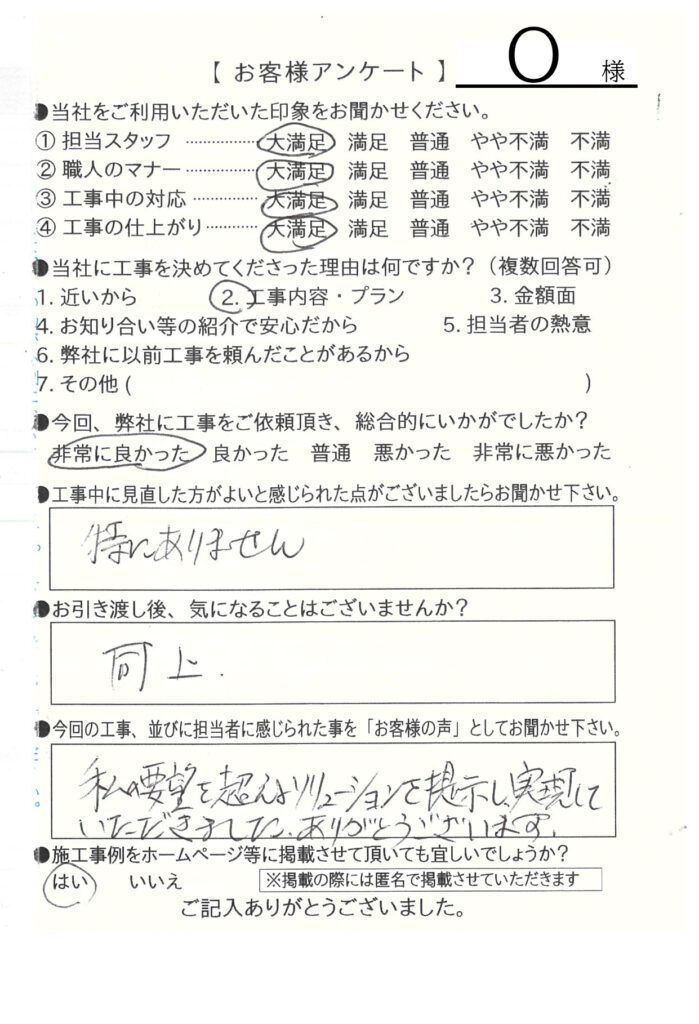 【 お客様アンケート 】 O 様
●当社をご利用いただいた印象をお聞かせください。
① 担当スタッフ ……………… 大満足 満足 普通 やや不満 不満
② 職人のマナー ……………… 大満足 満足 普通 やや不満 不満
③ 工事中の対応 ……………… 大満足 満足 普通 やや不満 不満
④ 工事の仕上がり ………… 大満足 満足 普通 やや不満 不満
●当社に工事を決めてくださった理由は何ですか？（複数回答可）
1. 近いから 2. 工事内容・プラン 3. 金額面
4. お知り合い等の紹介で安心だから 5. 担当者の熱意
6. 弊社に以前工事を頼んだことがあるから
7. その他 ( )
●今回、弊社に工事をご依頼頂き、総合的にいかがでしたか？
非常に良かった 良かった 普通 悪かった 非常に悪かった
●工事中に見直した方がよいと感じられた点がございましたらお聞かせ下さい。
特にありません
●お引き渡し後、気になることはございませんか？
同上.
●今回の工事、並びに担当者に感じられた事を「お客様の声」としてお聞かせ下さい。
私の要望を超えるソリューションを提示し、実現して
いただきました。ありがとうございます。
●施工事例をホームページ等に掲載させて頂いても宜しいでしょうか？
はい いいえ ※掲載の際には匿名で掲載させていただきます
ご記入ありがとうございました。